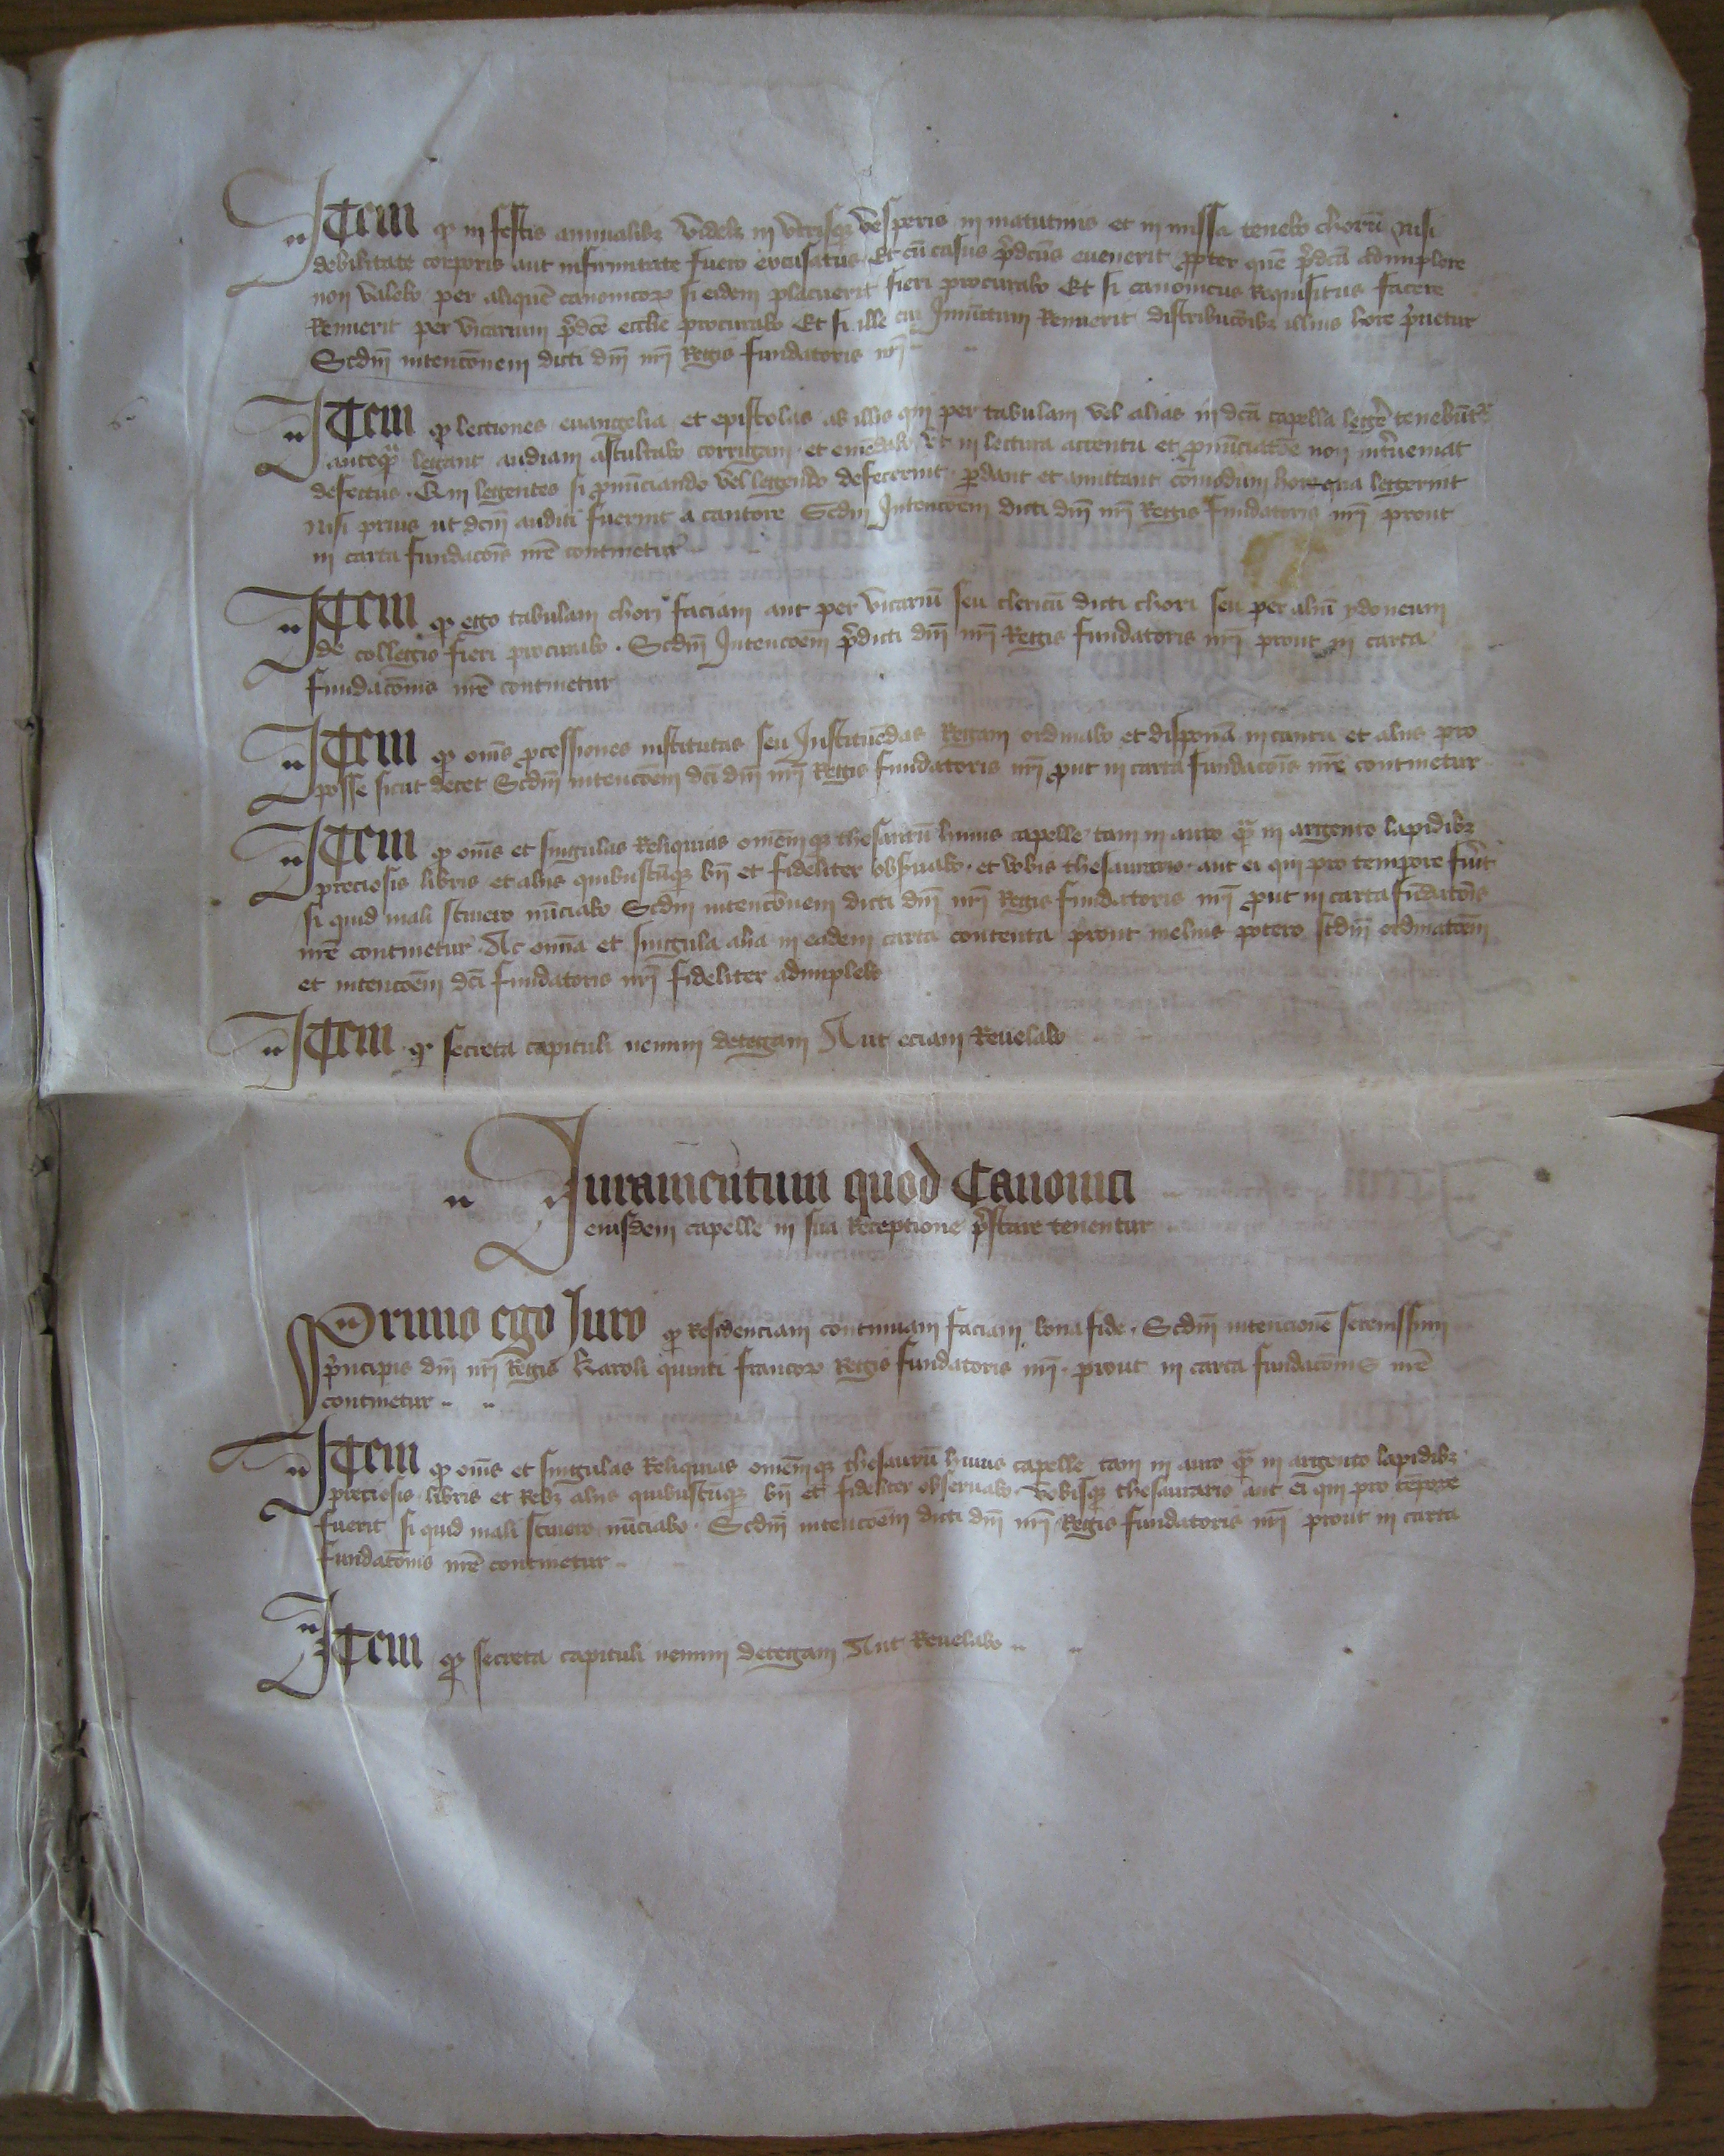 Item qȝ in festis annualibȝ videlȝ in vtrisqȝ vesperis in matutinis et in missa tenebo chorū nisi
debilitate corporis aut infirmitate fuero excusatus Et cū casus p̄dcūs euenerit ꝓpter quē p̄dcā adimplere
non valebo per aliquē canonicoꝝ si eidem placuerit fieri procurabo Et si canonicus Requisitus facere
Renuerit per vicarium p̄dcē ecclīe procurabo Et si ille cui Iniūctum Renuerit distribucōibȝ illius hore p̄uetur
Scdm̄ intencōnem dicti dnī nrī Regis fundatoris nrī
Item qȝ lectiones euangelia et epistolas ab illis qui per tabulam vel alias in dcā capella legere tenebūtr
anteqȝ legant audiam ascultabo corrigam et emēdabo vt in lectura accentu et ꝓnūciacōe non int̄ueniat
defectus Qui legentes si ꝓnūciando vel legendo defecerint ꝑdant et amittant cōmodum hore qua legerint
nisi prius ut dcm̄ auditi fuerint a cantore Scdm̄ Intencōem dicti dnī nrī Regis fundatoris nrī prout
in carta fundacōis nrē continetur
Item qȝ ego tabulam chori faciam aut per vicariū seu clericū dicti chori seu per aliū ydoneum
de collegio fieri procurabo Scdm̄ Intencōem p̄dicti dnī nrī Regis fundatoris nrī prout in carta
fundacōnis nrē continetur
Item qȝ om̄s ꝓcessiones institutas seu Instituēdas Regam ordinabo et disponā in cantu et aliis pro
posse sicut decet Scdm̄ intencōem dcī dnī nrī Regis fundatoris nrī ꝓut in carta fundacōis nrē continetur
Item qȝ om̄s et singulas Reliquias omēmqȝ thesaurū huius capelle tam in auro qȝ in argento lapidibȝ
preciosis libris et aliis quibuscūqȝ bn̄ et fideliter obseruabo et vobis thesaurario aut ei qui pro tempore fuīt
si quid mali sciuero nūciabo Scdm̄ intencōnem dicti dnī nrī Regis fundatoris nrī ꝓut in carta fūdacōis
nrē continetur Ac omīa et singula alia in eadem carta contenta prout melius potero scdm̄ ordinacōem
et intencōem dcī fundatoris nrī fideliter adimplebo
Item qȝ secreta capituli nemini detegam Aut eciam Reuelabo
Iuramentum quod Canonici
eiusdem capelle in sua Receptione p̄stare tenentur
Primo ego Iuro qȝ Residenciam continuam faciam bona fide Scdm̄ intencionē serenissimi
p̄ncipis dnī nrī Regis Karoli quinti francoꝝ Regis fundatoris nrī prout in carta fundacōnis nrē
continetur
Item qȝ om̄s et singulas Reliquias omēmqȝ thesaurū huius capelle tam in auro qȝ in argento lapidibȝ
preciosis libris et Rebȝ aliis quibuscūqȝ bn̄ et fideliter obseruabo vobisqȝ thesaurario aut ei qui pro tēpore
fuerit si quid mali sciuero nūciabo Scdm̄ intencōem dicti dnī nrī Regis fundatoris nrī prout in carta
fundacōnis nrē continetur
Item qȝ secreta capituli nemini detegam Aut Reuelabo